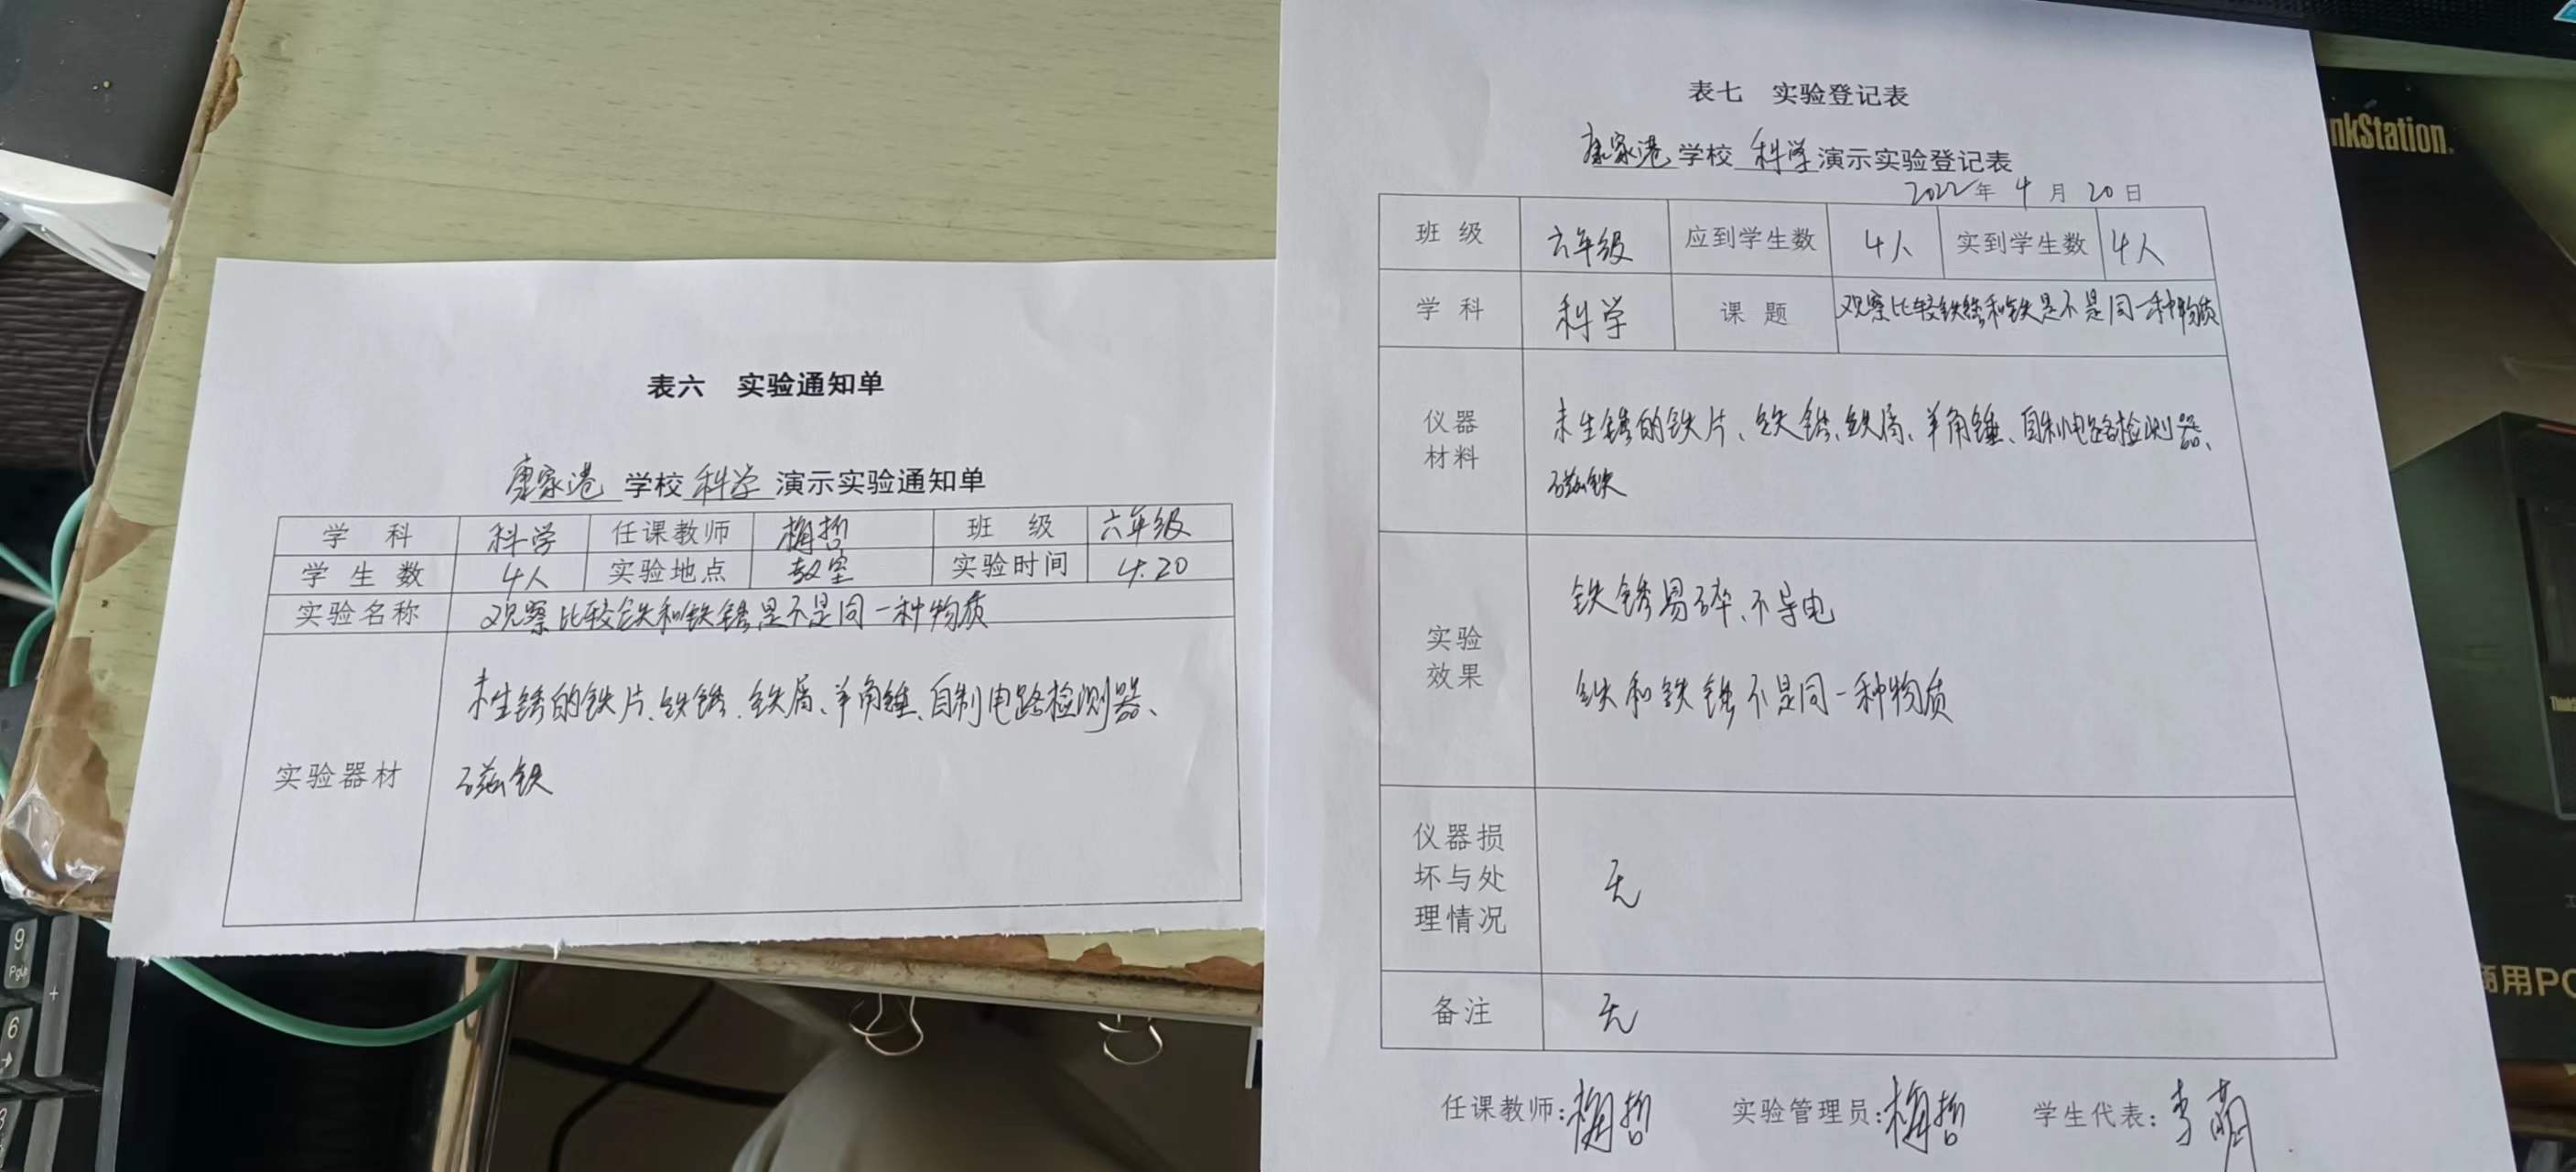 表六 实验通知单
康家港学校科学演示实验通知单
学科 科学 任课教师 梅哲 班级 六年级
学生数 4人 实验地点 教室 实验时间 4.20
实验名称 观察比较铁和铁锈是不是同一种物质
实验器材
未生锈的铁片、铁锈、铁屑、羊角锤、自制电路检测器、
磁铁
表七 实验登记表
康家港学校科学演示实验登记表
2022年4月20日
班级 六年级 应到学生数 4人 实到学生数 4人
学科 科学 课题 观察比较铁锈和铁是不是同一种物质
仪器
材料
未生锈的铁片、铁锈、铁屑、羊角锤、自制电路检测器、
磁铁
实验
效果
铁锈易碎、不导电
铁和铁锈不是同一种物质
仪器损
坏与处
理情况
无
备注 无
任课教师:梅哲 实验管理员:梅哲 学生代表:李
nkStation
商用PC
9
PgUp
+
6